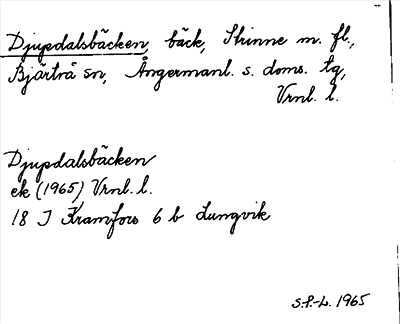 Djupdalsbäcken, bäck, Skinne m. fl.,
Bjärtrå sn, Ångermanl. s. doms. tg,
Vrnl. l.
Djupdalsbäcken
ek (1965) Vrnl. l.
18 J Kramfors 6 b Lungvik
S.P.-L. 1965